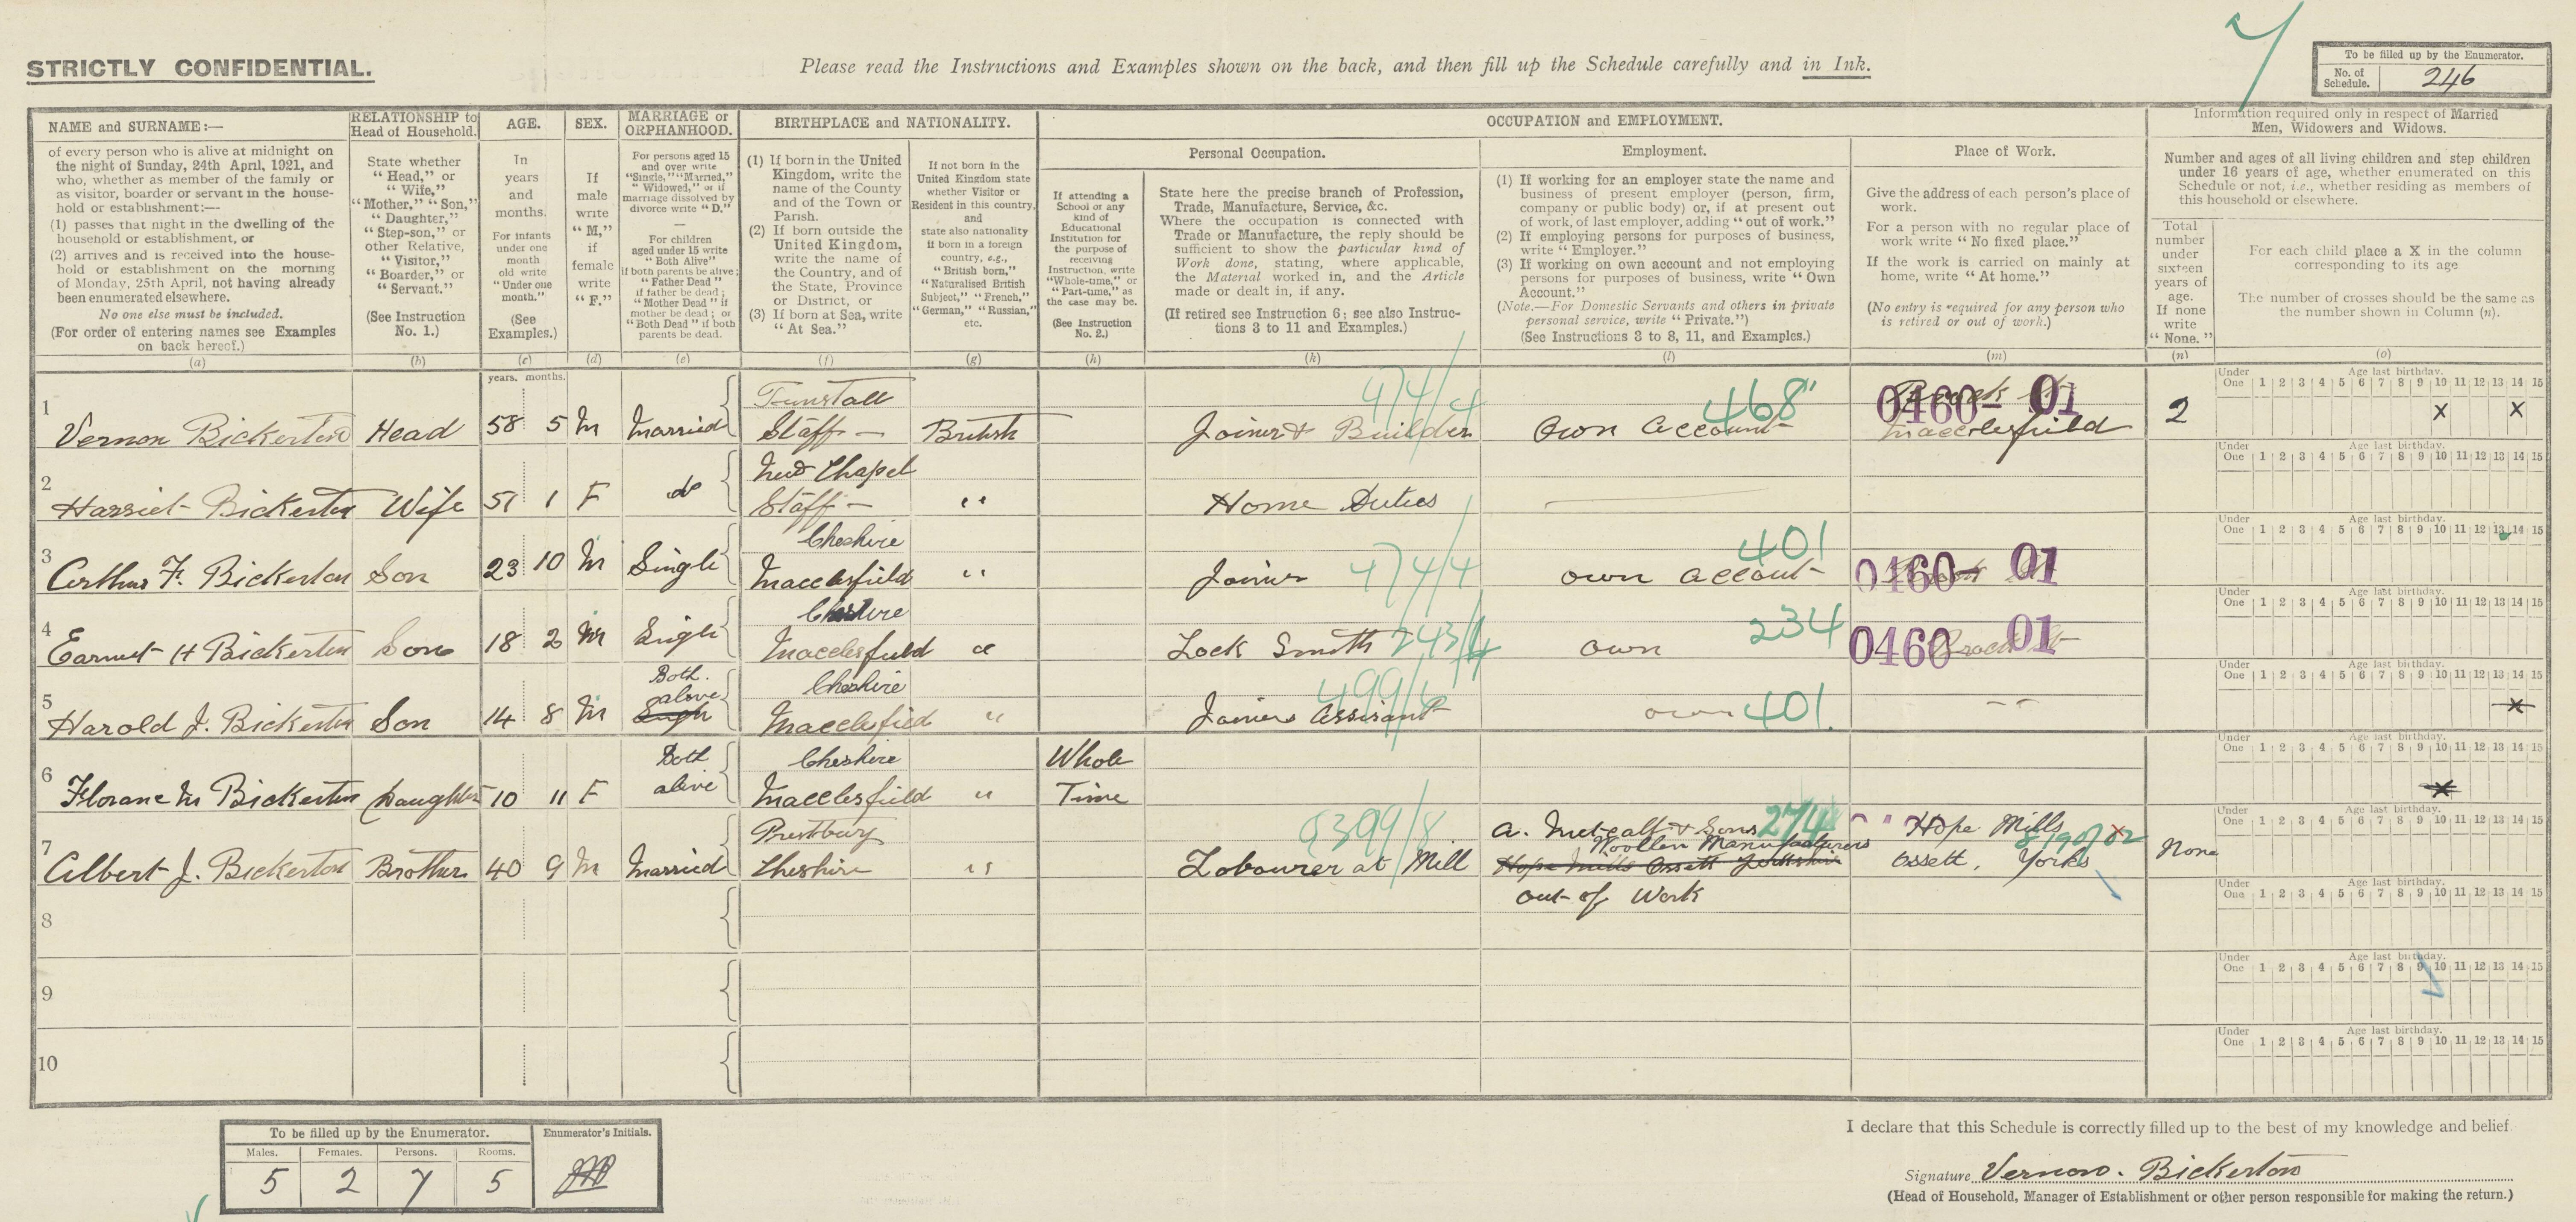 STRICTLY CONFIDENTIAL.
Please read the Instructions and Examples shown on the back, and then fill up the Schedule carefully and in Ink.
To be filled up by the Enumerator.
No. of Schedule. 246
NAME and SURNAME:—
of every person who is alive at midnight on
the night of Sunday, 24th April, 1921, and
who, whether as member of the family or
as visitor, boarder or servant in the house-
hold or establishment:—
(1) passes that night in the dwelling of the
household or establishment, or
(2) arrives and is received into the house-
hold or establishment on the morning
of Monday, 25th April, not having already
been enumerated elsewhere.
No one else must be included.
(For order of entering names see Examples
on back hereof.)
(a)
RELATIONSHIP to
Head of Household.
State whether
"Head," or
"Wife,"
"Mother," "Son,"
"Daughter,"
"Step-son," or
other Relative,
"Visitor,"
"Boarder," or
"Servant."
(See Instruction
No. 1.)
(b)
AGE.
In
years
and
months.
For infants
under one
month
old write
"Under one
month."
(See
Examples.)
(c)
SEX.
If
male
write
"M,"
if
female
write
"F."
(d)
MARRIAGE or
ORPHANHOOD.
For persons aged 15
and over write
"Single," "Married,"
"Widowed," or if
marriage dissolved by
divorce write "D."
—
For children
aged under 15 write
"Both Alive"
if both parents be alive;
"Father Dead"
if father be dead;
"Mother Dead" if
mother be dead; or
"Both Dead" if both
parents be dead.
(e)
BIRTHPLACE and NATIONALITY.
(1) If born in the United
Kingdom, write the
name of the County
and of the Town or
Parish.
(2) If born outside the
United Kingdom,
write the name of
the Country, and of
the State, Province
or District, or
(3) If born at Sea, write
"At Sea."
(f)
If not born in the
United Kingdom state
whether Visitor or
Resident in this country,
and
state also nationality
if born in a foreign
country, e.g.,
"British born,"
"Naturalised British
Subject," "French,"
"German," "Russian,"
etc.
(g)
OCCUPATION and EMPLOYMENT.
Personal Occupation.
If attending a
School or any
kind of
Educational
Institution for
the purpose of
receiving
Instruction, write
"Whole-time," or
"Part-time," as
the case may be.
(See Instruction
No. 2.)
(h)
State here the precise branch of Profession,
Trade, Manufacture, Service, &c.
Where the occupation is connected with
Trade or Manufacture, the reply should be
sufficient to show the particular kind of
Work done, stating, where applicable,
the Material worked in, and the Article
made or dealt in, if any.
(If retired see Instruction 6; see also Instruc-
tions 3 to 11 and Examples.)
(k)
Employment.
(1) If working for an employer state the name and
business of present employer (person, firm,
company or public body) or, if at present out
of work, of last employer, adding "out of work."
(2) If employing persons for purposes of business,
write "Employer."
(3) If working on own account and not employing
persons for purposes of business, write "Own
Account."
(Note.—For Domestic Servants and others in private
personal service, write "Private.")
(See Instructions 3 to 8, 11, and Examples.)
(l)
Place of Work.
Give the address of each person's place of
work.
For a person with no regular place of
work write "No fixed place."
If the work is carried on mainly at
home, write "At home."
(No entry is required for any person who
is retired or out of work.)
(m)
Information required only in respect of Married
Men, Widowers and Widows.
Number and ages of all living children and step children
under 16 years of age, whether enumerated on this
Schedule or not, i.e., whether residing as members of
this household or elsewhere.
Total
number
under
sixteen
years of
age.
If none
write
"None."
(n)
For each child place a X in the column
corresponding to its age
The number of crosses should be the same as
the number shown in Column (n).
(o)
years. months.
Under One
Age last birthday.
1 2 3 4 5 6 7 8 9 10 11 12 13 14 15
1 Vernon Bickerton Head 58 5 M Married Tunstall Staff— British Joiner & Builder 474/4 Own Account 468 0460- 01 Macclesfield 2 X X
2 Harriet Bickerton Wife 51 1 F do New Chapel Staff— " Home Duties
3 Arthur F. Bickerton Son 23 10 M Single Cheshire Macclesfield " Joiner 474/4 own account 401 0460- 01
4 Earnest H Bickerton Son 18 2 M Single Cheshire Macclesfield " Lock Smith 243/4 own 234 0460 01 Brock St
5 Harold J. Bickerton Son 14 8 M Both alive Single Cheshire Macclesfield " Joiners Assisant 499/6 own 401. X
6 Florance M Bickerton Daughter 10 11 F Both alive Cheshire Macclesfield " Whole Time X
7 Albert J. Bickerton Brother 40 9 M Married Prestbury Cheshire " Labourer at Mill 0399/8 A. Metcalf & Sons 274 Woollen Manufacturers Hope Mills Ossett Yorkshire out of Work Hope Mills Ossett, Yorks None
8
9
10
To be filled up by the Enumerator.
Males. Females. Persons. Rooms.
5 2 7 5
Enumerator's Initials.
I declare that this Schedule is correctly filled up to the best of my knowledge and belief
Signature Vernon. Bickerton
(Head of Household, Manager of Establishment or other person responsible for making the return.)